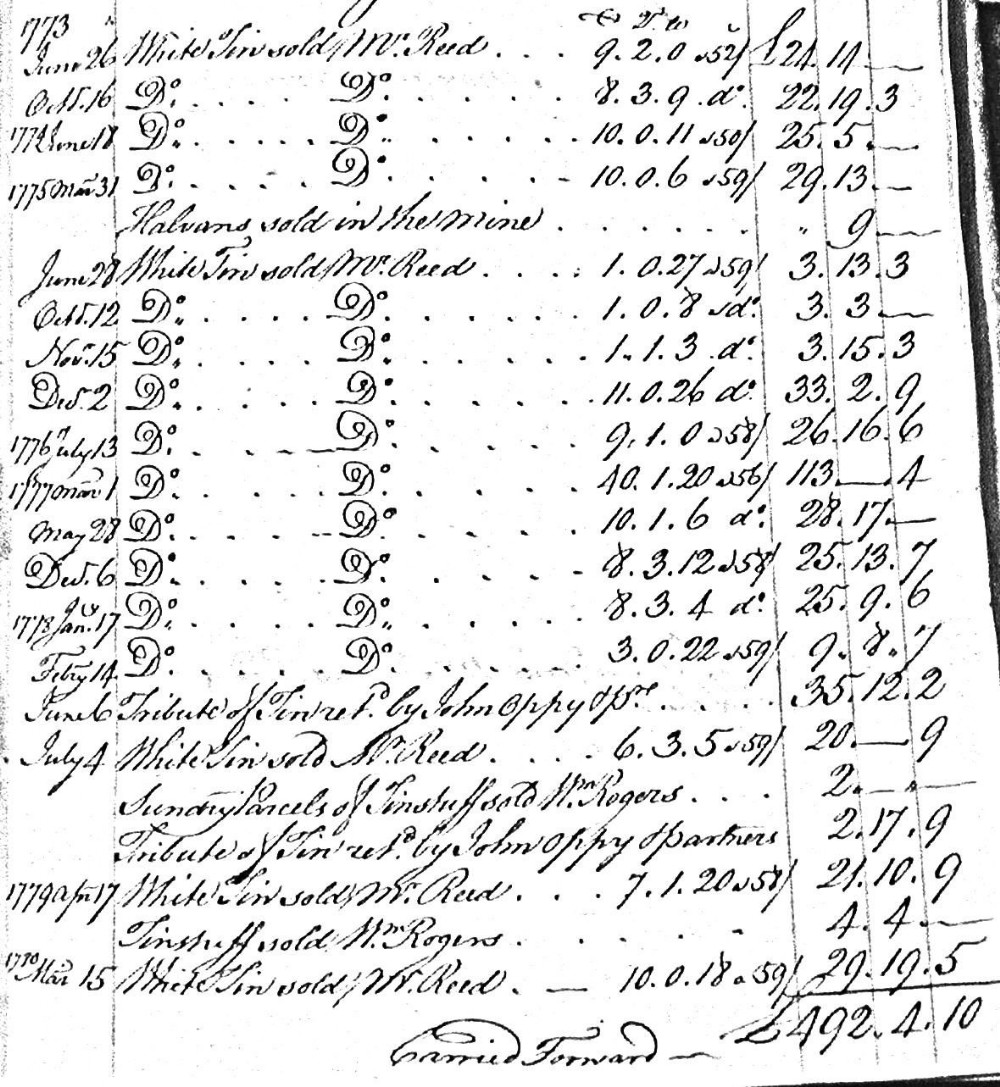 1773 C Qr lb
June 26 White Tin sold Mr. Reed . . . 9. 2. 0 a 52/ £24. 14. —
Octr. 16 Do. . . . . . Do. . . . . . 8. 3. 9 do. 22. 19. 3
1774 June 18 Do. . . . . . Do. . . . . . 10. 0. 11 a 50/ 25. 5. —
1775 Mar 31 Do. . . . . . Do. . . . . . 10. 0. 6 a 59/ 29. 13. —
Halvans sold in the mine . . . . . . . " 9 —
June 28 White Tin sold Mr. Reed . . . . 1. 0. 27 a 59/ 3. 13. 3
Octr. 12 Do. . . . . . Do. . . . . . 1. 0. 8 a do. 3. 3 —
Novr. 15 Do. . . . . . Do. . . . . . 1. 1. 3 do. 3. 15. 3
Decr. 2 Do. . . . . . Do. . . . . . 11. 0. 26 do. 33. 2. 9
1776 July 13 Do. . . . . . Do. . . . . . 9. 1. 0 a 58/ 26. 16. 6
1777 Mar 1 Do. . . . . . Do. . . . . . 40. 1. 20 a 56/ 113. — . 4
May 28 Do. . . . . . Do. . . . . . 10. 1. 6 do. 28. 17. —
Decr. 6 Do. . . . . . Do. . . . . . 8. 3. 12 a 58/ 25. 13. 7
1778 Jany. 17 Do. . . . . . Do. . . . . . 8. 3. 4 do. 25. 9. 6
Febry 14 Do. . . . . . Do. . . . . . 3. 0. 22 a 59/ 9. 8. 7
June 6 Tribute of Tin retd. by John Oppy & Ps. . . . . 35. 12. 2
July 4 White Tin sold Mr. Reed . . . . 6. 3. 5 a 59/ 20. — 9
Sundry Parcels of Tinstuff sold Wm. Rogers . . . . 2. — " —
Tribute of Tin retd. by John Oppy & partners 2. 17. 9
1779 Apr 17 White Tin sold Mr. Reed . . . 7. 1. 20 a 58/ 21. 10. 9
Tinstuff sold Wm. Rogers . . . . . . 4. 4 —
1780 Mar 15 White Tin sold Mr. Reed . — 10. 0. 18 a 59/ 29. 19. 5
Carried Forward — £492. 4. 10